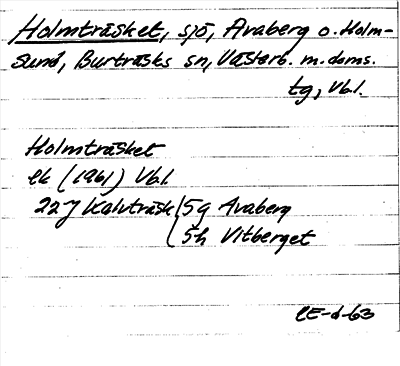 Holmträsket, sjö, Avaberg o. Holm-
sund, Burträsks sn, Västerb. m. doms.
tg, Vb.l.
Holmträsket
ek (1961) Vb.l.
22J Kalvträsk (5g Avaberg
5h Vitberget
CE-d-63